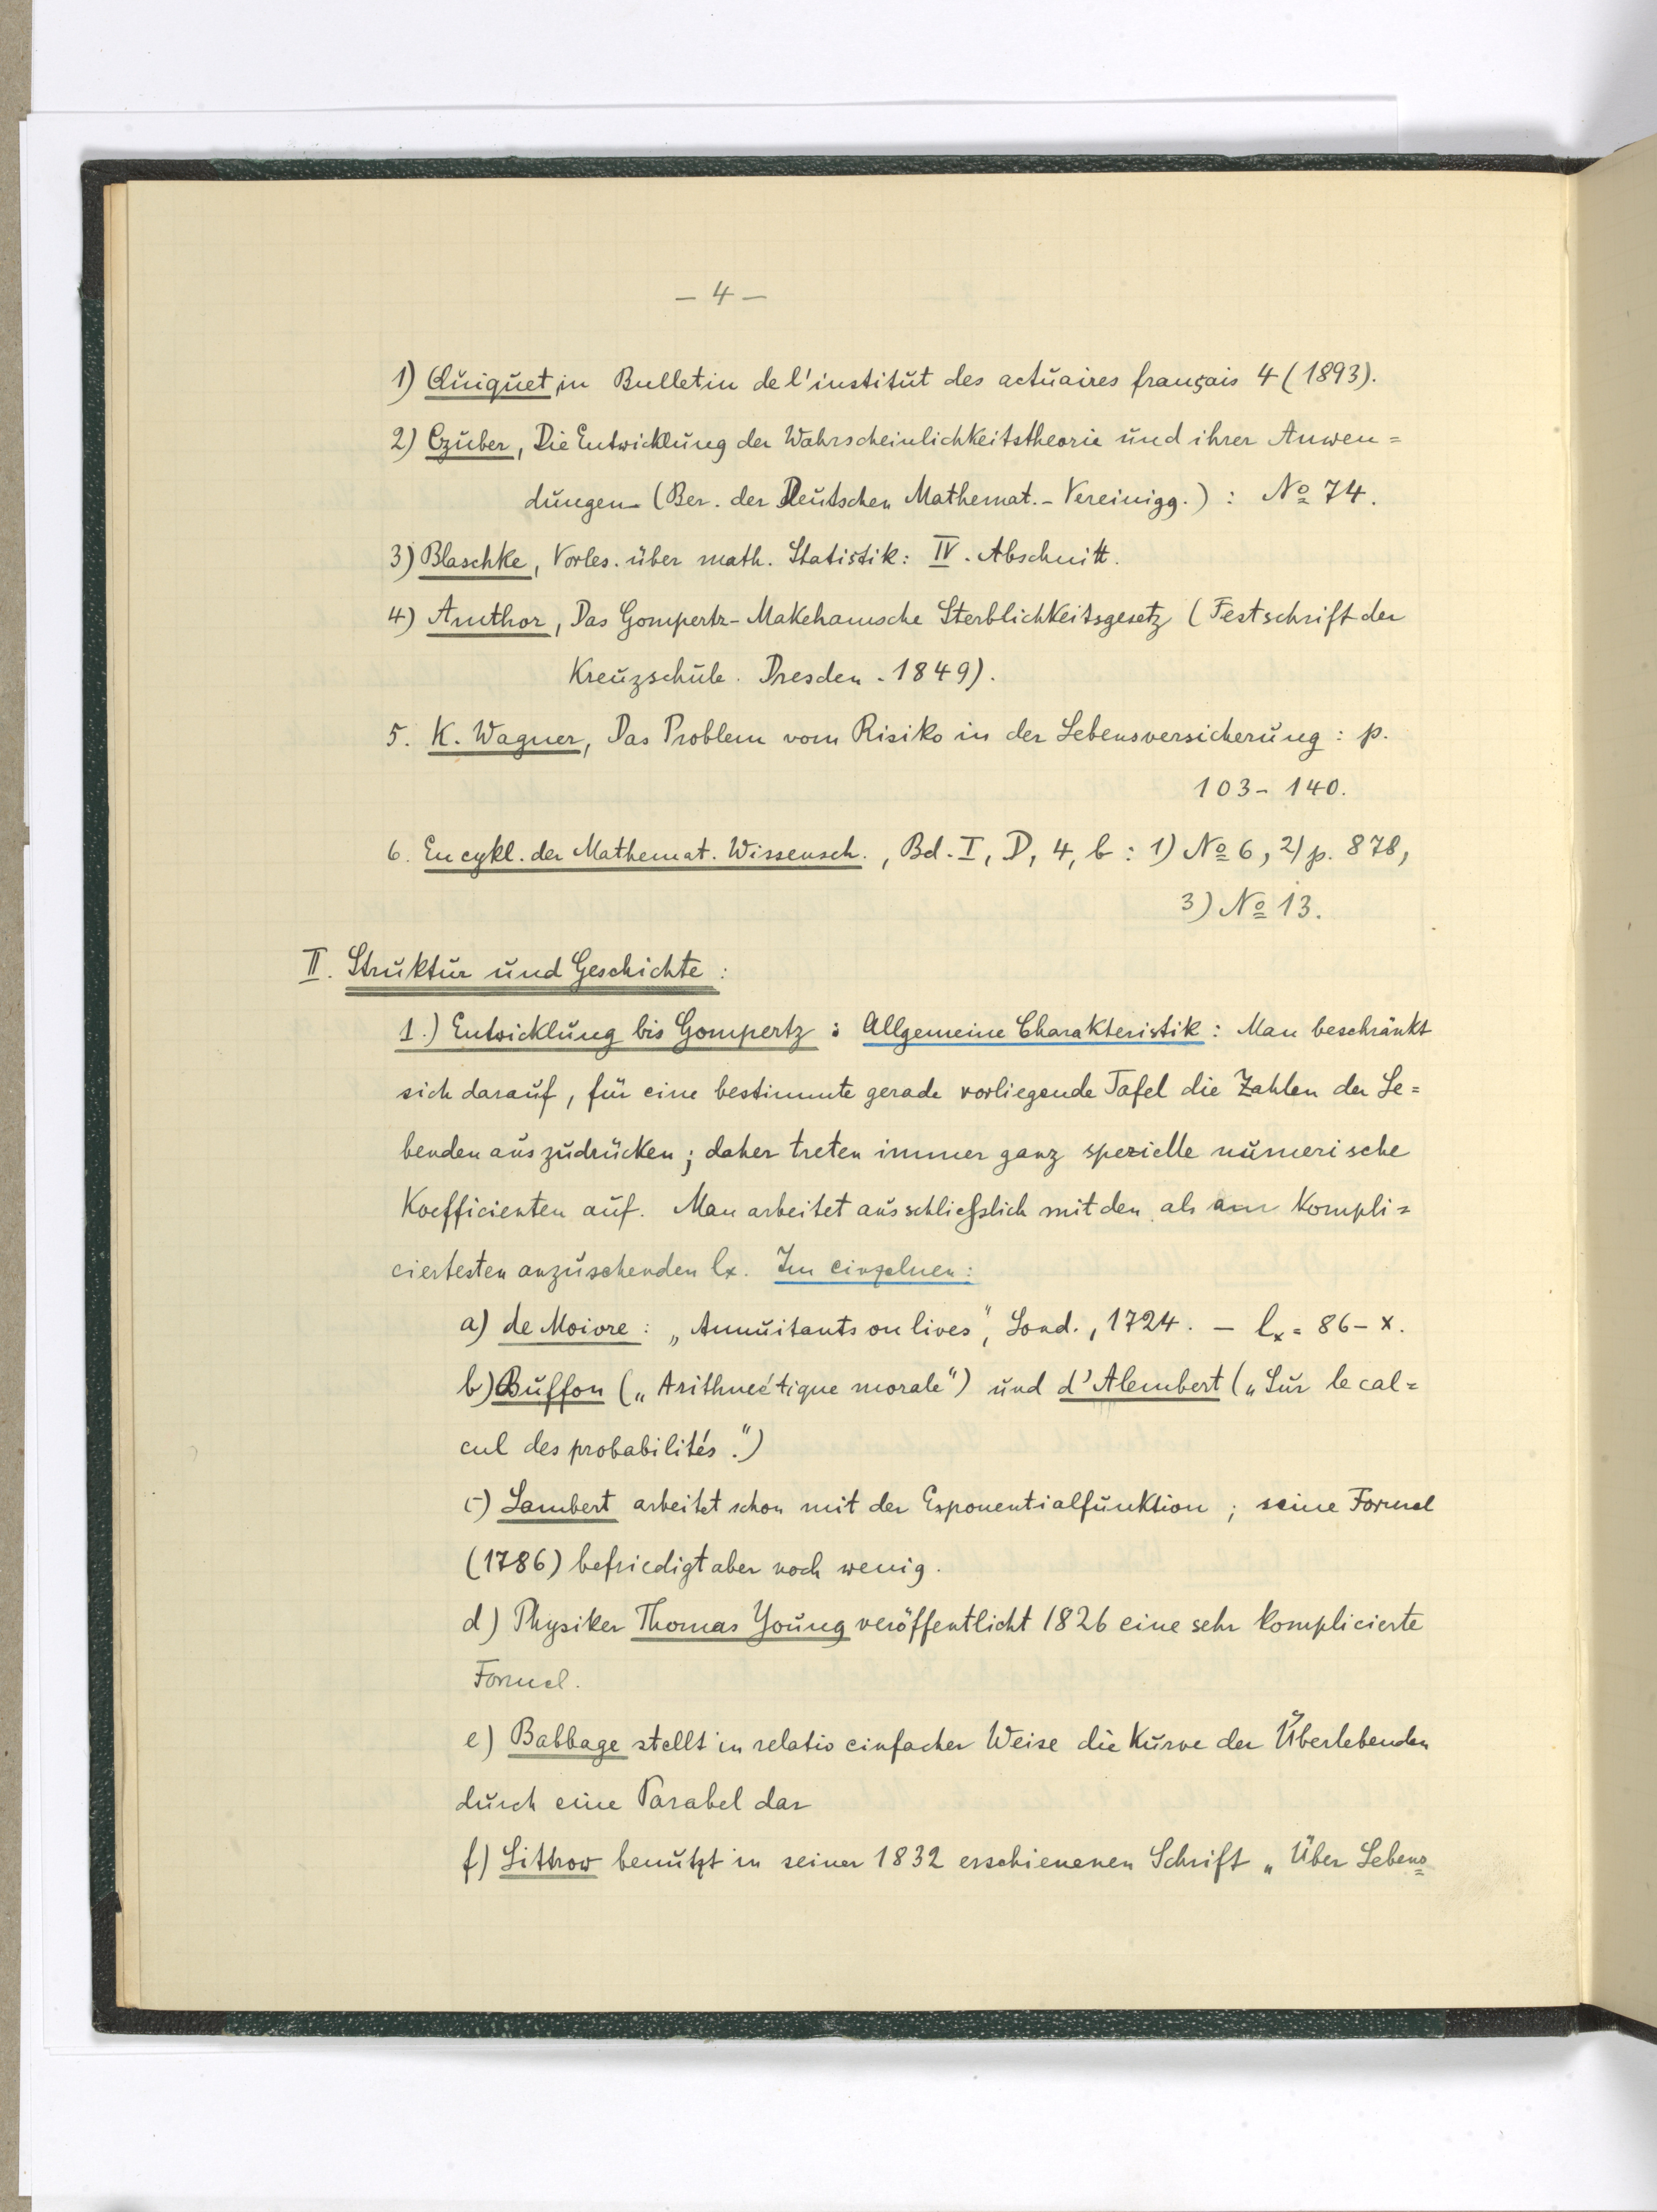 – 4 –
1) Quiquet, in Bulletin de l'institut des actuaires français 4 (1893).
2) Czuber, Die Entwicklung der Wahrscheinlichkeitstheorie und ihrer Anwen=
dungen (Ber. der Deutschen Mathemat.- Vereinigg.) : No 74.
3) Blaschke, Vorles. über math. Statistik: IV. Abschnitt.
4) Amthor, Das Gompertz-Makehamsche Sterblichkeitsgesetz (Festschrift der
Kreuzschule. Dresden. 1849).
5. K. Wagner, Das Problem vom Risiko in der Lebensversicherung : p.
103- 140.
6. Encykl. der Mathemat. Wissensch., Bd. I, D, 4, b : 1) No 6, 2) p. 878,
3) No 13.
II. Struktur und Geschichte :
1.) Entwicklung bis Gompertz : Allgemeine Charakteristik : Man beschränkt
sich darauf, für eine bestimmte gerade vorliegende Tafel die Zahlen der Le=
benden auszudrücken ; daher treten immer ganz spezielle numerische
Koefficienten auf. Man arbeitet ausschließlich mit den als am kompli=
ciertesten anzusehenden lx. Im einzelnen :
a) de Moivre : „Annuitants on lives", Lond., 1724. – lx = 86 – x.
b) Buffon („Arithmétique morale") und d'Alembert („Sur le cal=
cul des probabilités.")
c) Lambert arbeitet schon mit der Exponentialfunktion ; seine Formel
(1786) befriedigt aber noch wenig.
d) Physiker Thomas Young veröffentlicht 1826 eine sehr komplicierte
Formel.
e) Babbage stellt in relativ einfacher Weise die Kurve der Überlebenden
durch eine Parabel dar
f) Littrow benützt in seiner 1832 erschienenen Schrift „Über Lebens=